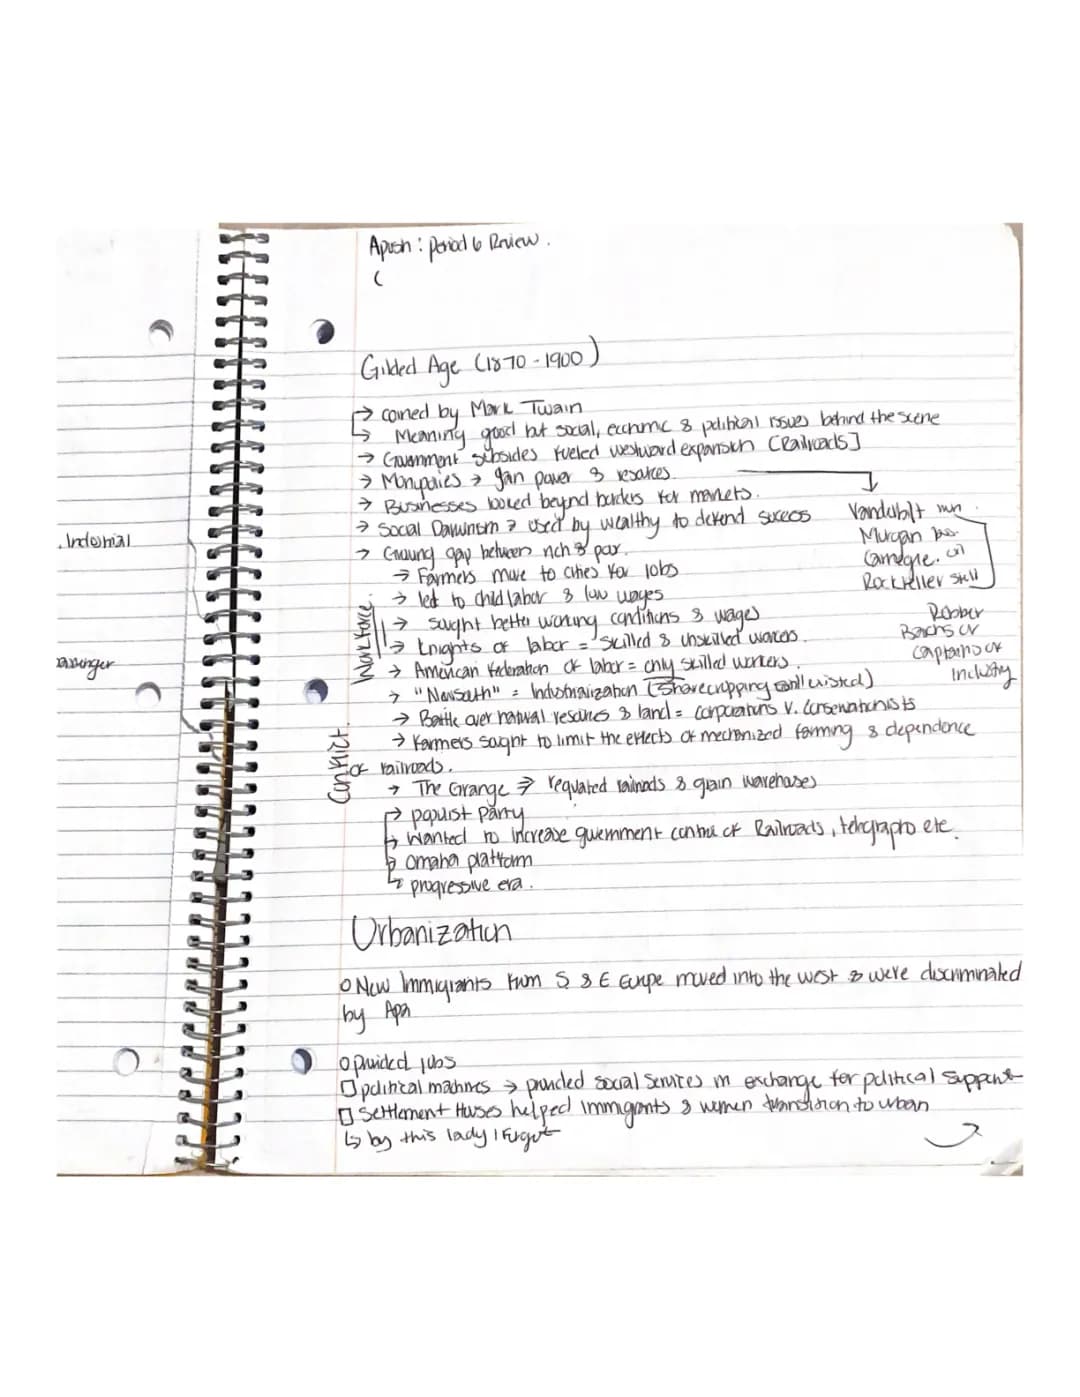 Apush : Period 6 Review .
(
Gilded Age (1870 - 1900)
→ coined by Mark Twain
→ Meaning good but social, economic & political issues behind the scene
→ Government subsides fueled westward expansion [Railroads]
→ Monopolies → gain power & resources
→ Businesses looked beyond borders for markets.
→ Social Darwinism → used by wealthy to defend success
→ Growing gap between rich & poor.
→ Farmers move to cities for jobs
→ led to child labor & low wages
Vanderbilt
Morgan
Carnegie. oil
Rockefeller
Robber
Barons or
Captains of
Industry
Work force.
→ sought better working conditions & wages
→ Knights of labor = skilled & unskilled workers.
→ American Federation of labor = only skilled workers.
→ "New South" = Industrialization (sharecropping still existed)
→ Battle over natural resources & land = corporations v. conservationists
→ Farmers sought to limit the effects of mechanized farming & dependence
of railroads.
Conflict.
→ The Grange → regulated railroads & grain warehases
→ populist party
→ Wanted to increase government control of Railroads, telegraphs etc.
→ omaha platform
→ progressive era.
Urbanization
o New Immigrants from S & E Europe moved into the west & were discriminated
by Apa
o Provided jobs
□ political machines → provided social services in exchange for political support
□ Settlement Houses helped immigrants & women transition to urban
↳ by this lady I forgot